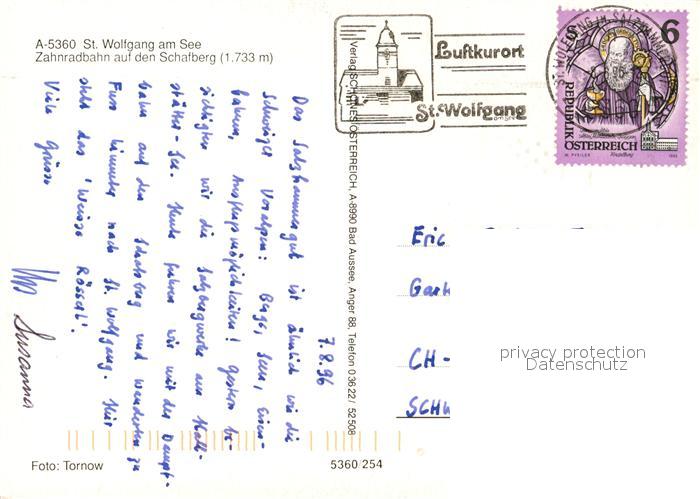 A-5360 St. Wolfgang am See
Zahnradbahn auf den Schafberg (1.733 m)
Luftkurort
St. Wolfgang
ST. WOLFGANG IM SALZKAMMERGUT
S 6
REPUBLIK
ÖSTERREICH
Verlag SCHÖNES ÖSTERREICH, A-8990 Bad Aussee, Anger 88, Telefon 0 36 22 / 52 5 08
7.8.96
Das Salzkammergut ist ähnlich wie die
Schweizer Voralpen: Berge, Seen, Eisen-
bahnen, Ausflugsmöglichkeiten! Gestern be-
sichtigten wir die Salzbergwerke am Hall-
stätter-See. Heute fuhren wir mit der Dampf-
bahn auf den Schafberg und wanderten zu
Fuss hinunter nach St. Wolfgang. Hier
steht das "Weisse Rössel".
Viele Grüsse
Susanna
Eric
CH -
privacy protection
Datenschutz
Foto: Tornow
5360/254